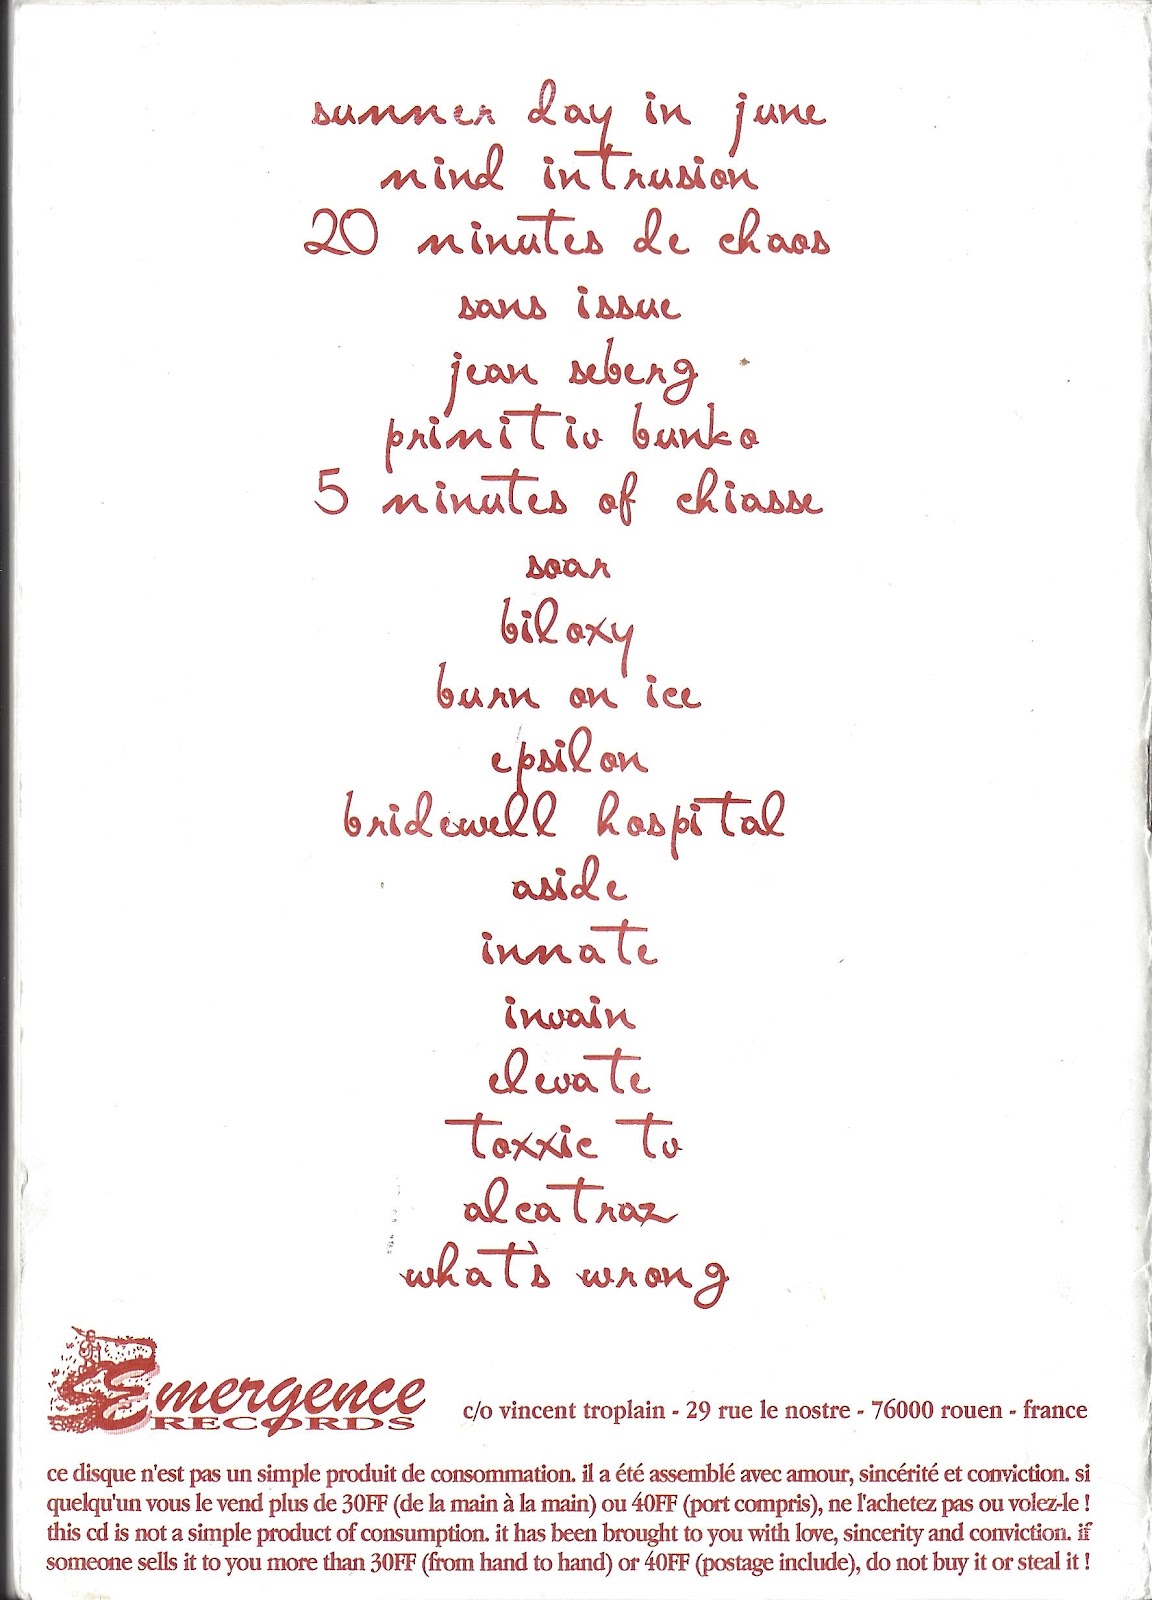 summer day in june
mind intrusion
20 minutes de chaos
sans issue
jean seberg
primitiv bunko
5 minutes of chiasse
soar
biloxy
burn on ice
epsilon
bridewell hospital
aside
innate
invain
elevate
toxxic tv
alcatraz
what's wrong
Emergence
RECORDS
c/o vincent troplain - 29 rue le nostre - 76000 rouen - france
ce disque n'est pas un simple produit de consommation. il a été assemblé avec amour, sincérité et conviction. si
quelqu'un vous le vend plus de 30FF (de la main à la main) ou 40FF (port compris), ne l'achetez pas ou volez-le !
this cd is not a simple product of consumption. it has been brought to you with love, sincerity and conviction. if
someone sells it to you more than 30FF (from hand to hand) or 40FF (postage include), do not buy it or steal it !